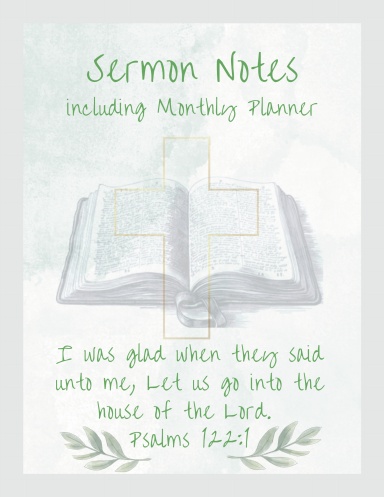 Sermon Notes
including Monthly Planner
I was glad when they said
unto me, Let us go into the
house of the Lord.
Psalms 122:1